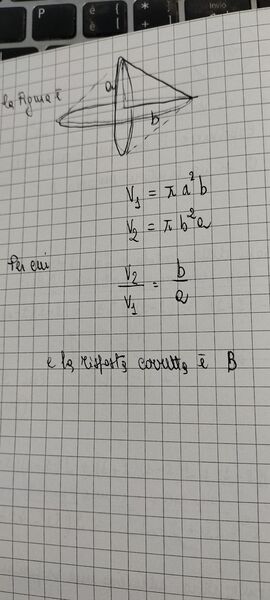 la figura è
a
b
V₁ = π a² b
V₂ = π b² a
Per cui
V₂/V₁ = b/a
e la risposta corretta è B